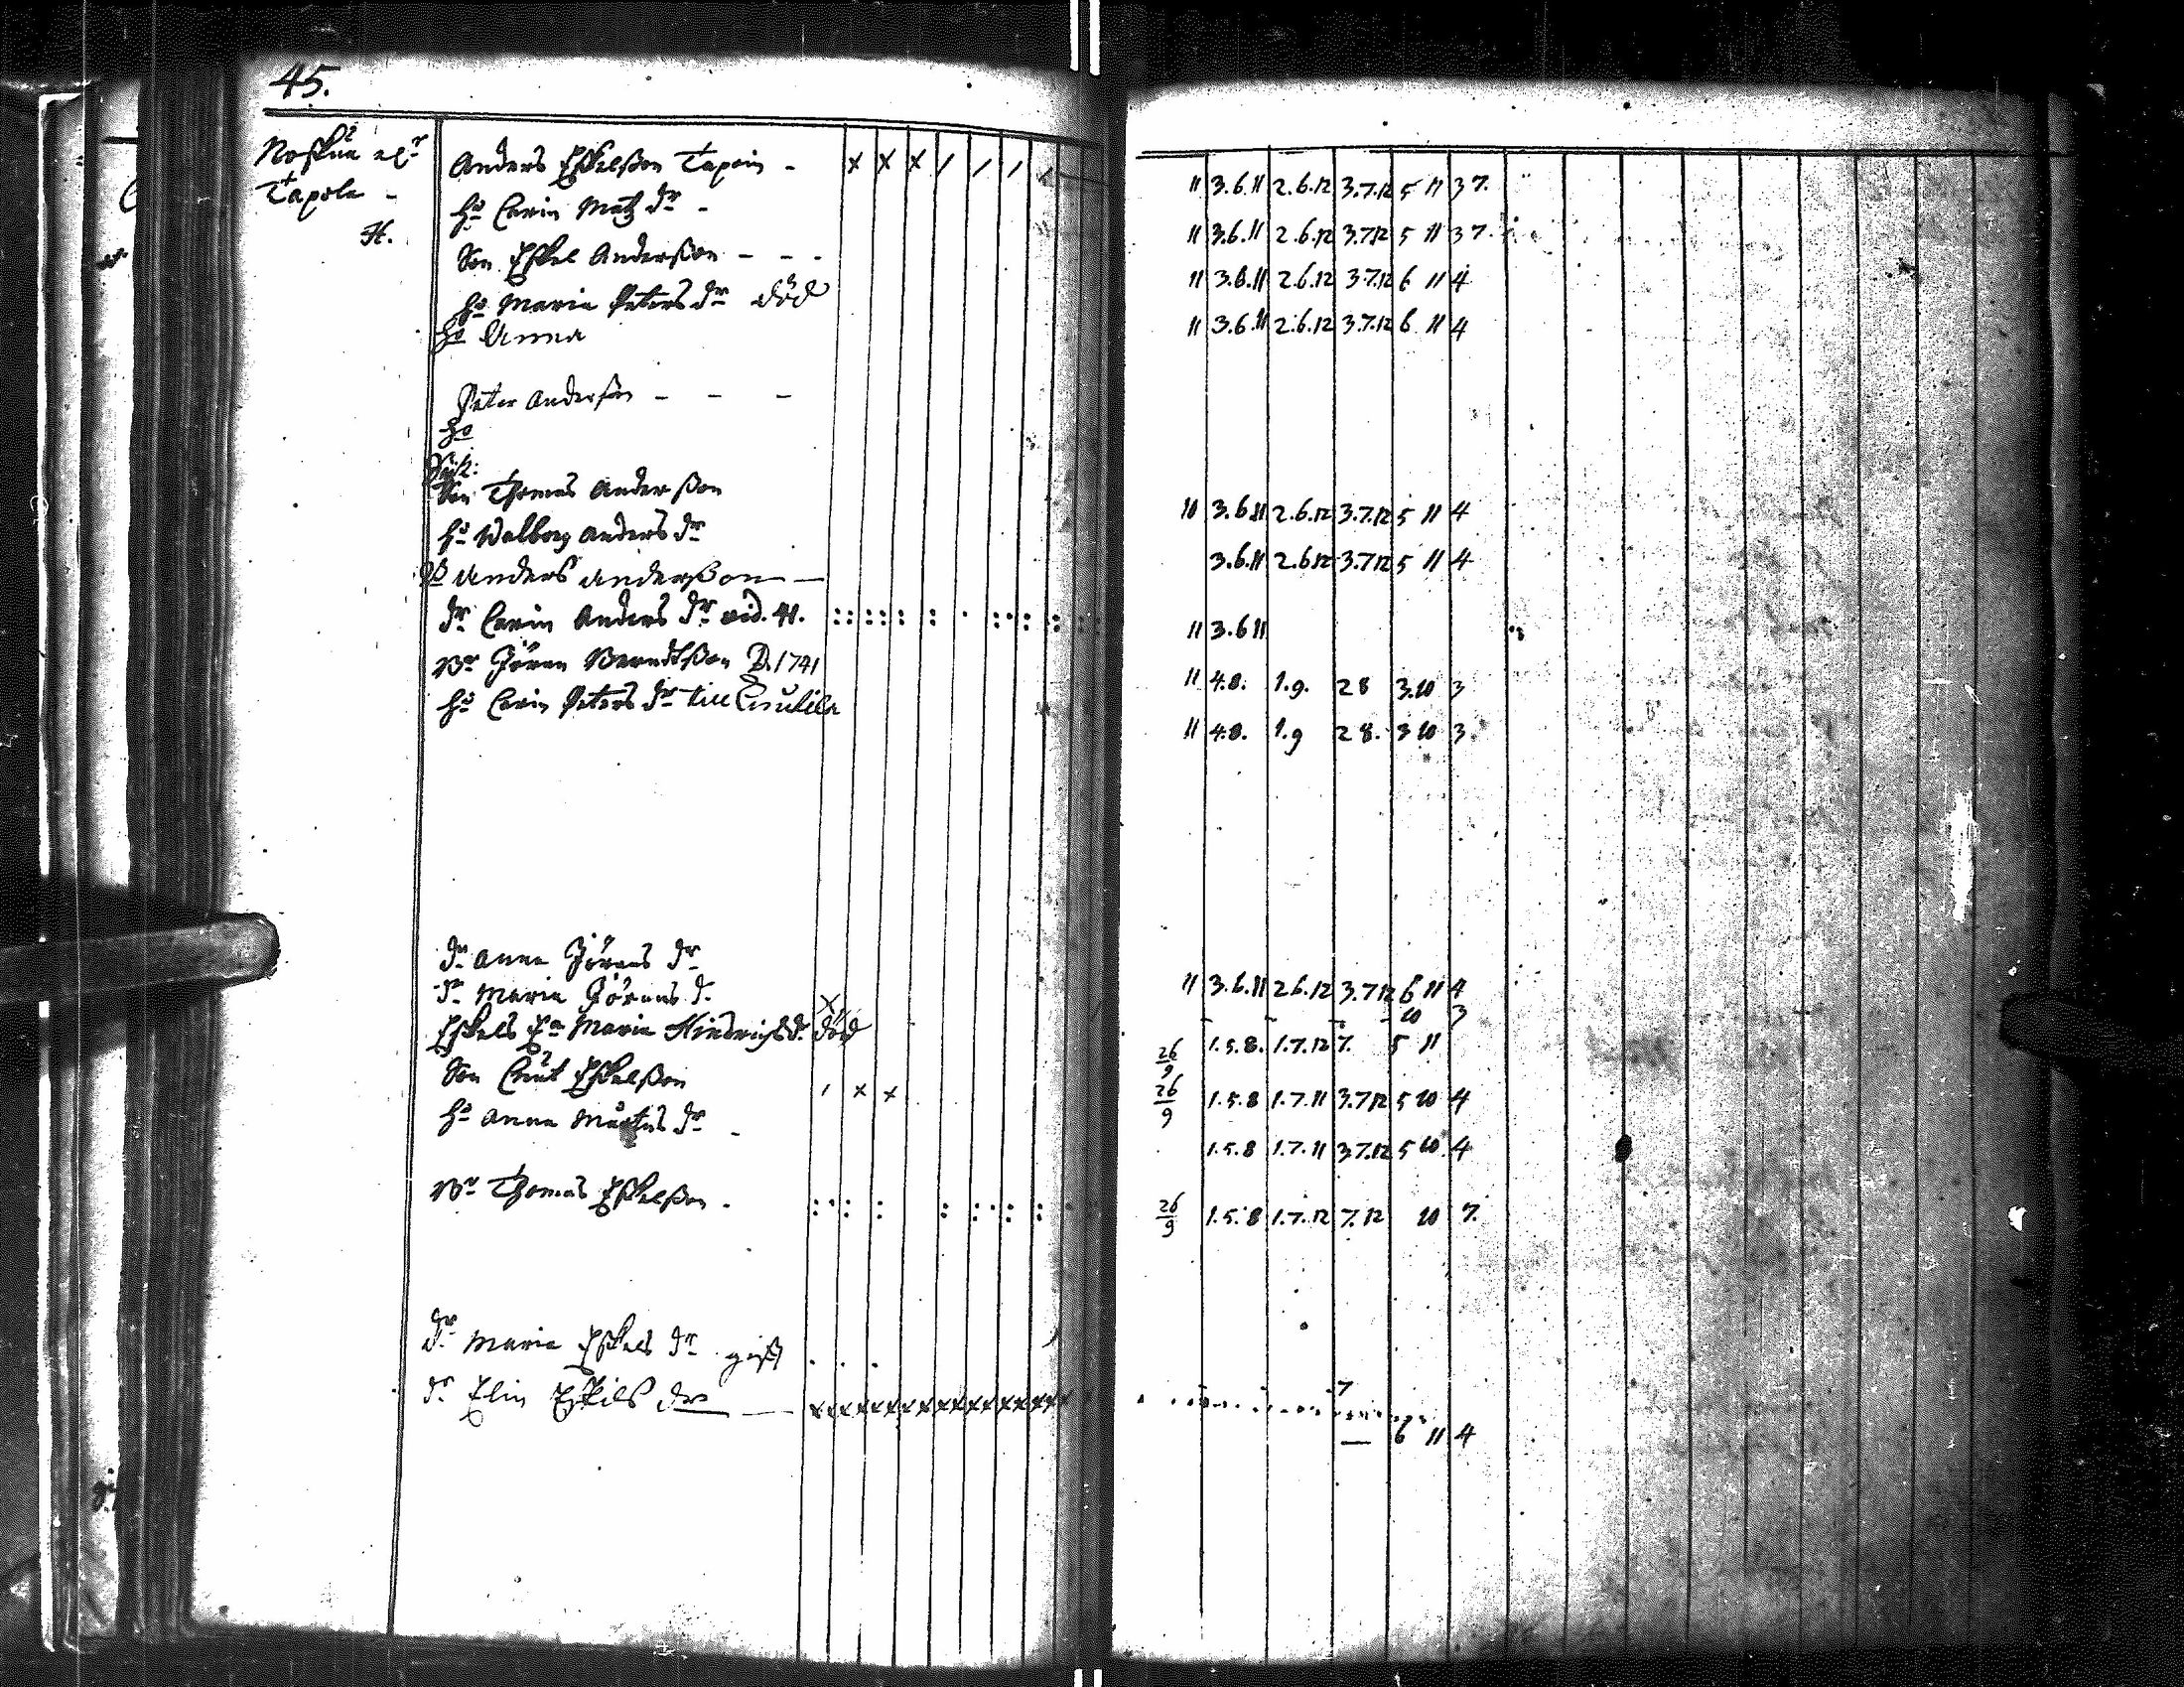 45.
Noskua elr
Tapola -
H.
Anders Eskelsson Tapoin - x x x / / / /
hu Carin Matz dr -
Son Eskel Andersson - - -
ho Maria Peters dr död
ho Anna
Peter Andersson - - -
ho
Son Thomas Andersson
hu Walborg Anders dr
Anders Andersson —
dr Carin Anders dr vid. 41.
Br Jöran Berndtsson D. 1741
hu Carin Peters dr till
dr Anna Jörans dr
dr Maria Jörans d. x
Eskels Ea Maria Hindrichsd. död
Son Cnut Eskelsson / x x
hu Anna Mårtens dr -
Br Thomas Eskelsson -
dr Maria Eskels dr gift . . .
dr Elin Eskils dr —
11 3.6.11 2.6.12 3.7.12 5 11 3 7.
11 3.6.11 2.6.12 3.7.12 5 11 3 7.
11 3.6.11 2.6.12 3.7.12 6 11 4
11 3.6.11 2.6.12 3.7.12 6 11 4
10 3.6.11 2.6.12 3.7.12 5 11 4
3.6.11 2.6.12 3.7.12 5 11 4
11 3.6 11
11 4.8. 1.9. 2 8 3.10 3
11 4.8. 1.9 2 8. 3 10 3.
11 3.6.11 2.6.12 3.7.12 6 11 4
- - - - 10 3
26/9 1.5.8. 1.7.12 7. 5 11
26/9 1.5.8 1.7.11 3.7.12 5 10 4
1.5.8 1.7.11 3.7.12 5 10 4
26/9 1.5.8 1.7.12 7.12 10 7.
7
— 6 11 4